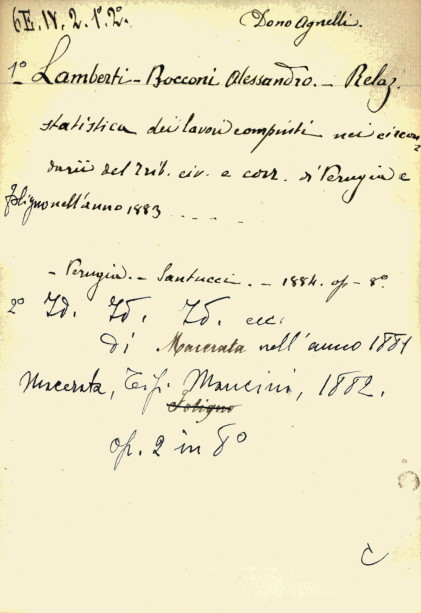 6E.IV.2.1°.2°. Dono Agnelli.
1° Lamberti-Bocconi Alessandro. - Relaz.
statistica dei lavori compiuti nei circon
darii del Trib. civ. e corr. di Perugia e
Foligno nell'anno 1883 . - - -
- Perugia. - Santucci. - 1884. op - 8°.
2° Id. Id. Id. ecc.
di Macerata nell'anno 1881
Macerata, Tip. Mancini, 1882.
Foligno
op. 2 in 8°
C